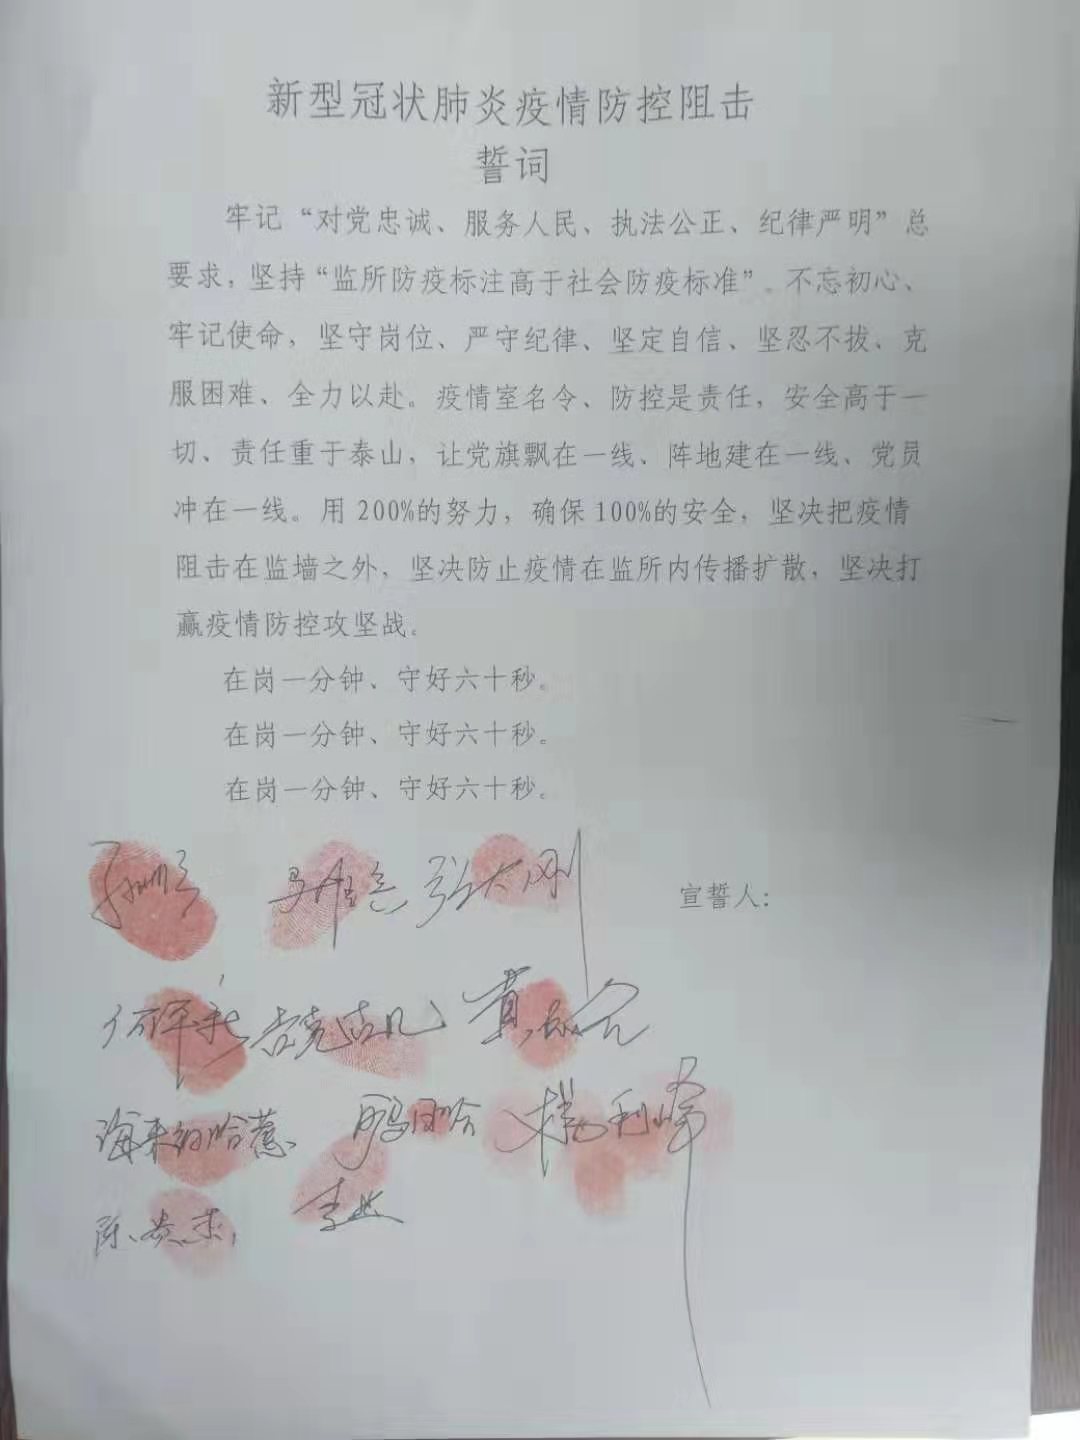 新型冠状肺炎疫情防控阻击
誓词
牢记“对党忠诚、服务人民、执法公正、纪律严明”总
要求，坚持“监所防疫标注高于社会防疫标准”。不忘初心、
牢记使命，坚守岗位、严守纪律、坚定自信、坚忍不拔、克
服困难、全力以赴。疫情室名令、防控是责任，安全高于一
切、责任重于泰山，让党旗飘在一线、阵地建在一线、党员
冲在一线。用200%的努力，确保100%的安全，坚决把疫情
阻击在监墙之外，坚决防止疫情在监所内传播扩散，坚决打
赢疫情防控攻坚战。
在岗一分钟、守好六十秒。
在岗一分钟、守好六十秒。
在岗一分钟、守好六十秒。
张大刚
宣誓人：
吉克古几
杨利峰